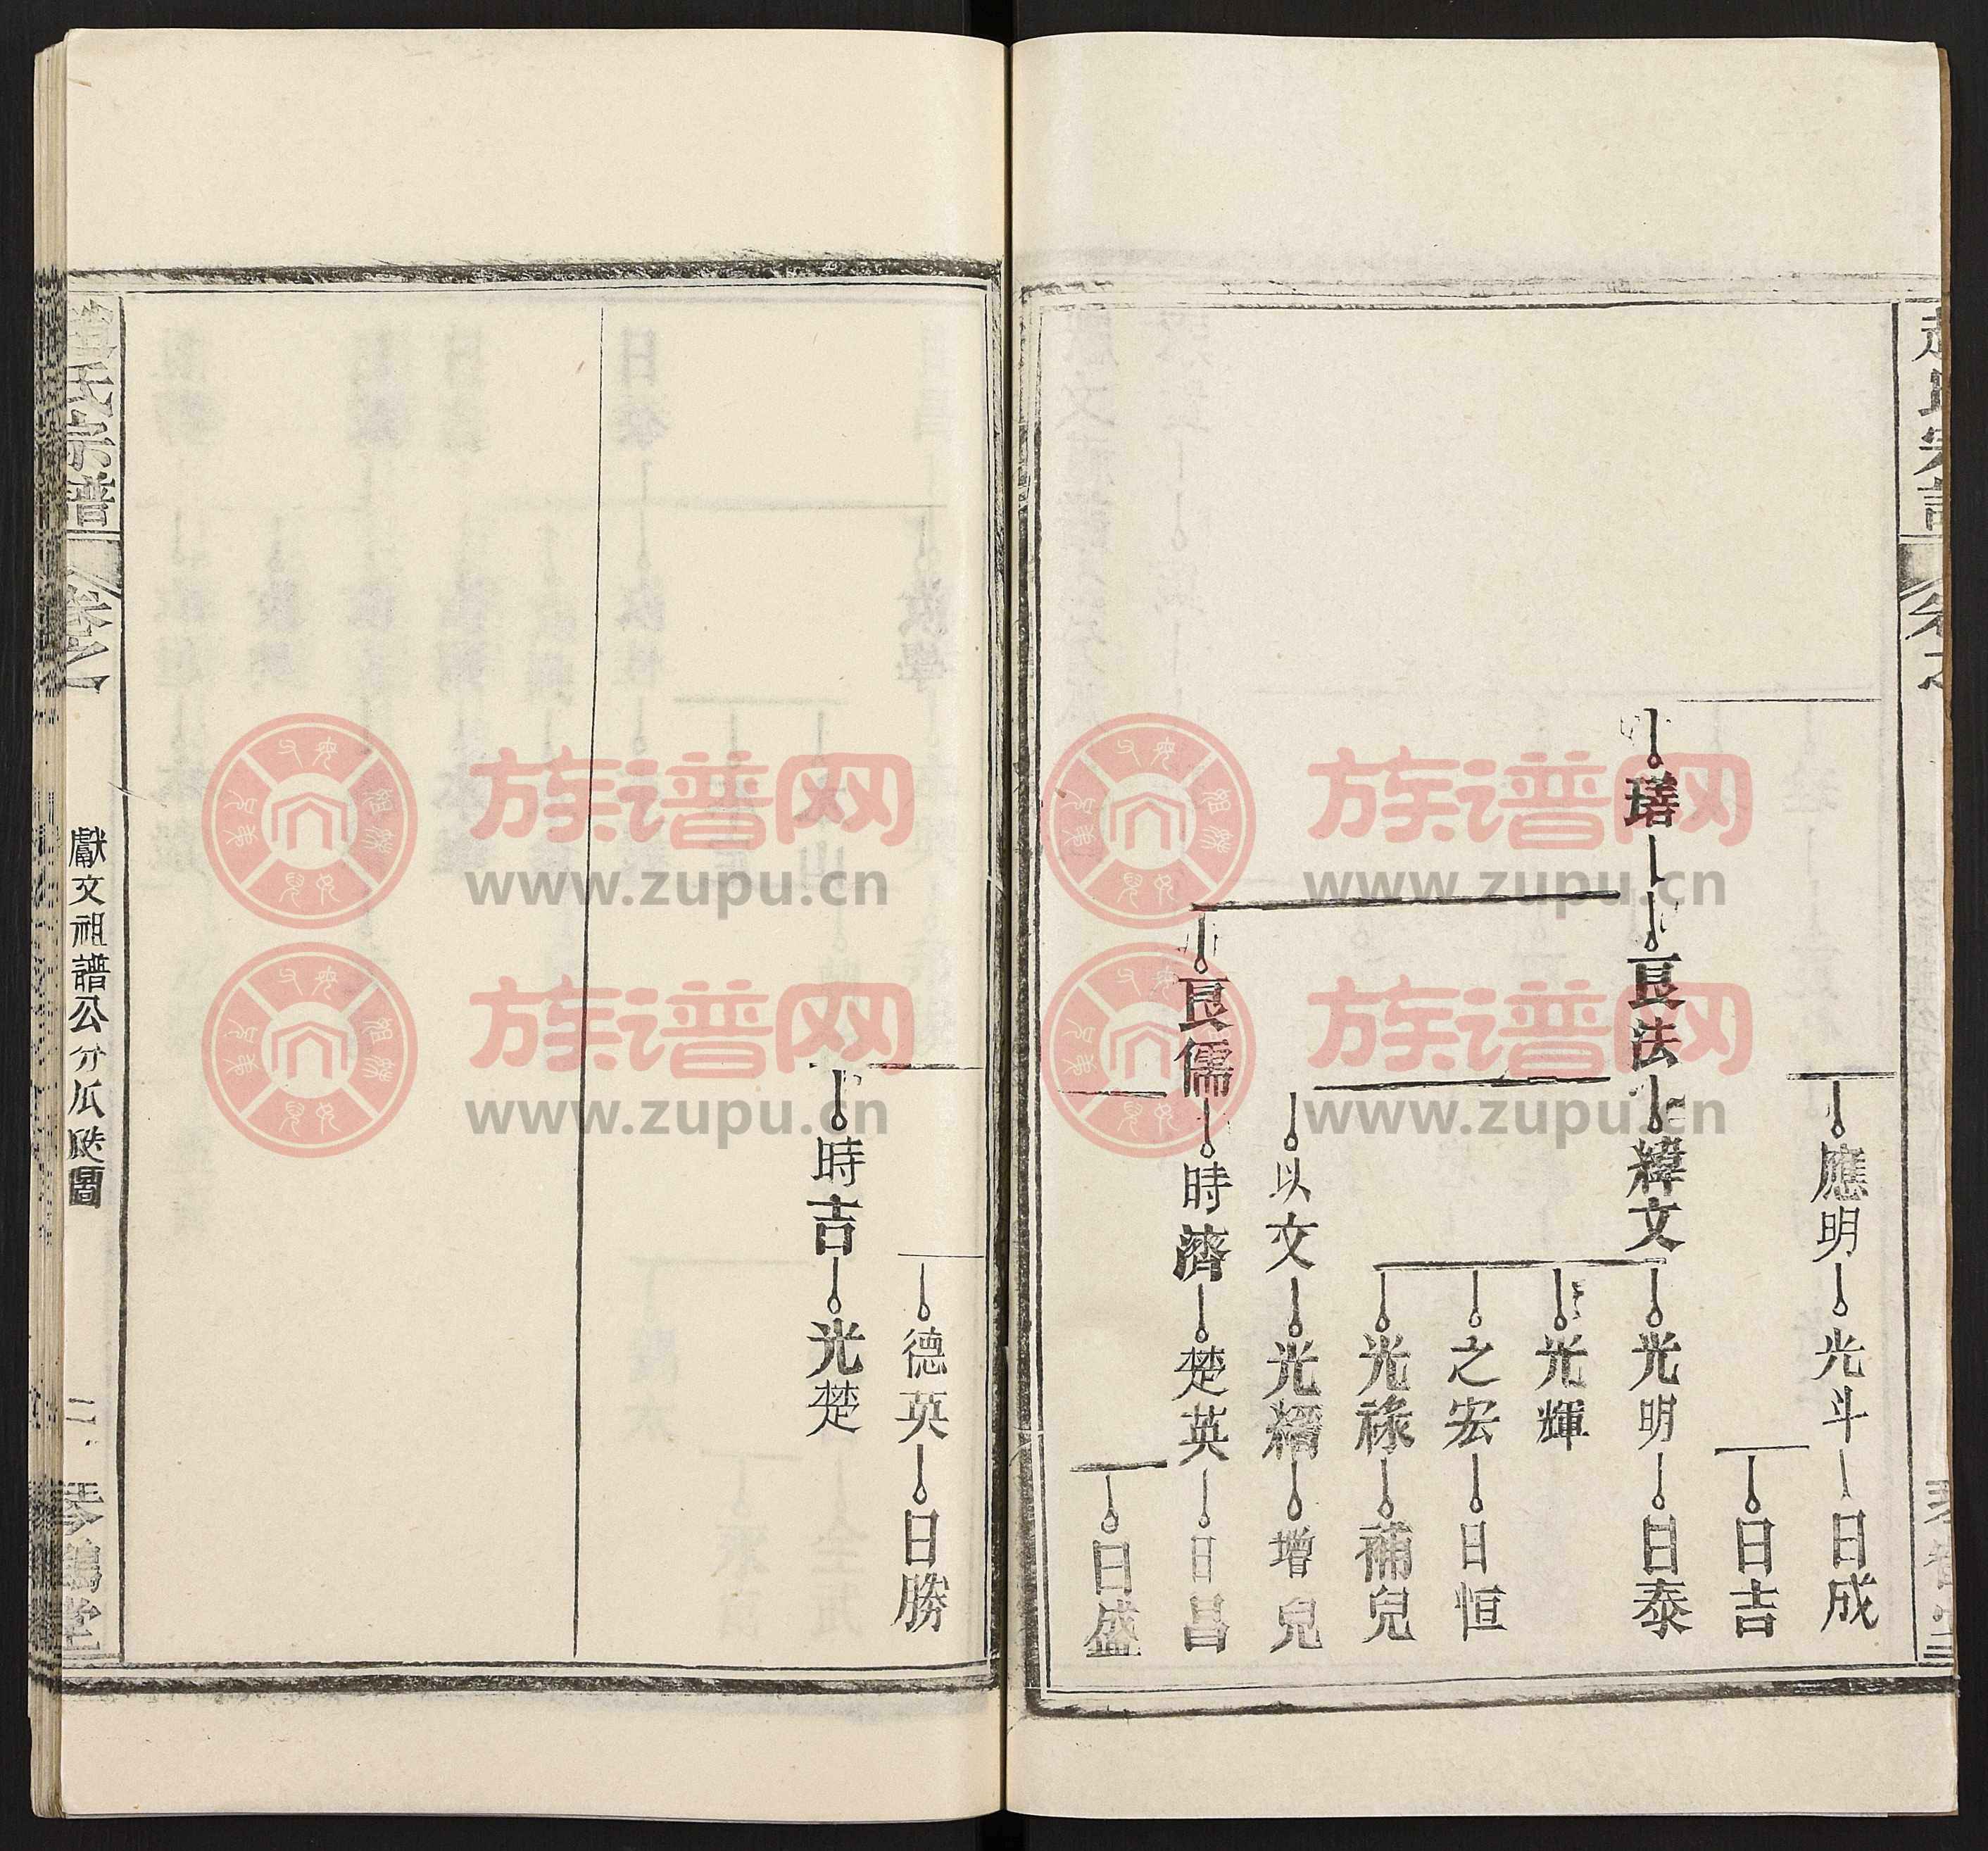 應明 光斗 日成
日吉
璿 良法 緯文 光明 日泰
光輝
之宏 日恒
光祿 補兒
以文 光縉 增兒
良儒 時濟 楚英 日昌
日盛
德英 日勝
時吉 光楚
趙氏宗譜 卷之
獻文祖譜公分瓜瓞圖
二
琴鶴堂
族谱网
www.zupu.cn
族谱网
www.zupu.cn
族谱网
www.zupu.cn
族谱网
www.zupu.cn